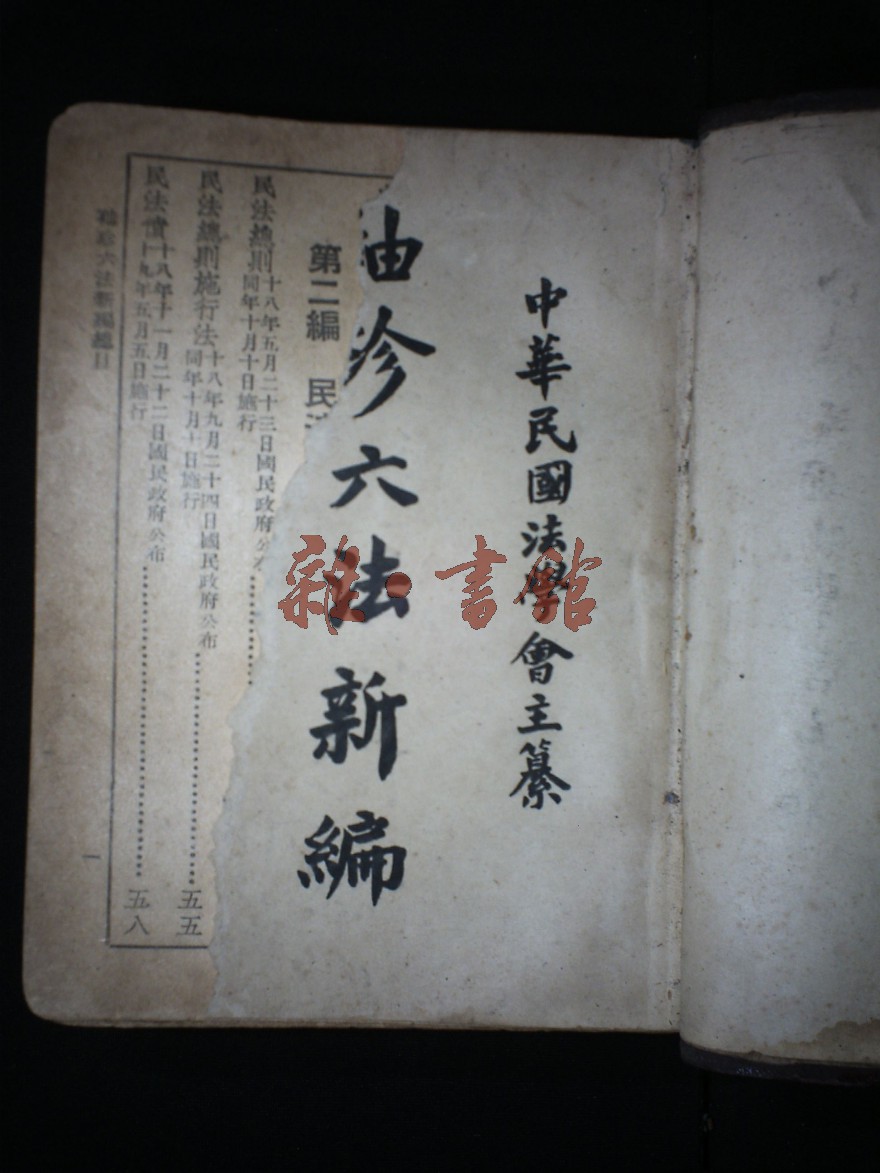 中華民國法學會主纂
袖珍六法新編
雜·書館
第二編 民法
民法總則 十八年五月二十三日國民政府公布
同年十月十日施行
民法總則施行法 十八年九月二十四日國民政府公布
同年十月十日施行
五五
民法債 十八年十一月二十二日國民政府公布
十九年五月五日施行
五八
袖珍六法新編總目
一